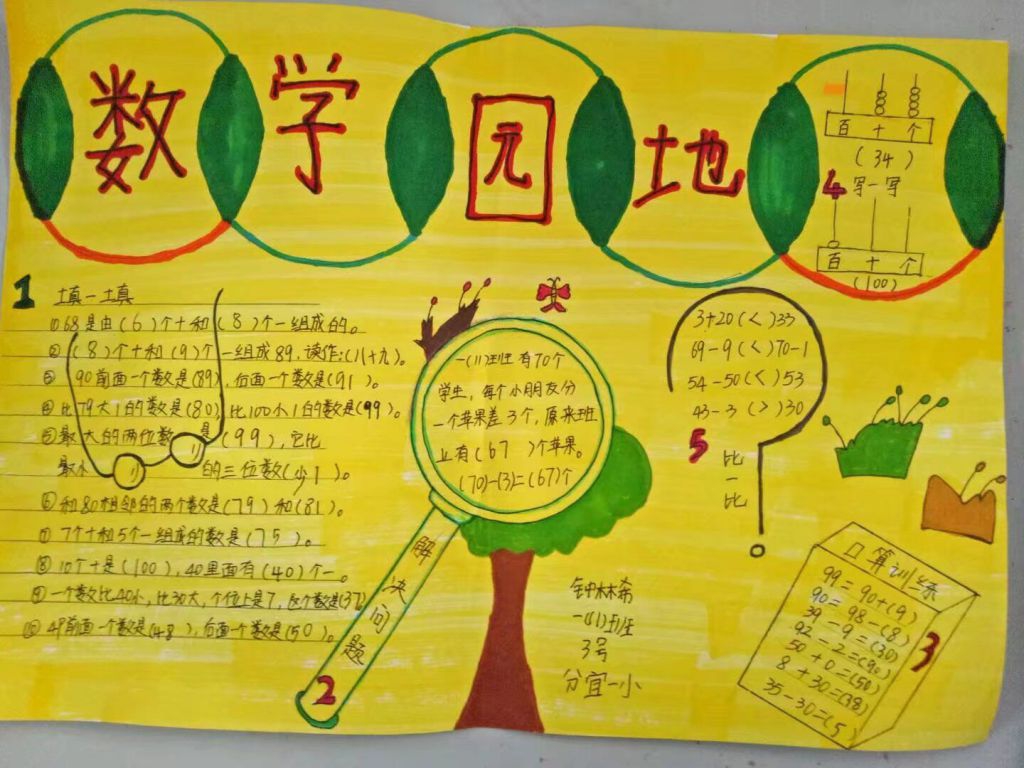 数学园地
1 填一填
①68是由(6)个十和(8)个一组成的。
②(8)个十和(9)个一组成89,读作:(八十九)。
③90前面一个数是(89),后面一个数是(91)。
④比79大1的数是(80),比100小1的数是(99)。
⑤最大的两位数是(99),它比
最小的三位数(少1)。
⑥和80相邻的两个数是(79)和(81)。
⑦7个十和5个一组成的数是(75)。
⑧10个十是(100),40里面有(40)个一。
⑨一个数比40小,比30大,个位上是7,这个数是(37)
⑩49前面一个数是(48),后面一个数是(50)。
一(1)班有70个
学生,每个小朋友分
一个苹果差3个,原来班
上有(67)个苹果。
(70)-(3)=(67)个
解决问题
2
钟林希
一(1)班
3号
分宜一小
百十个
(34)
4 写一写
百十个
(100)
3+20(<)33
69-9(<)70-1
54-50(<)53
43-3(>)30
5
比一比
口算训练
99=90+(9)
90=98-(8)
39-9=(30)
92-2=(90)
50+0=(50)
8+30=(38)
35-30=(5)
3